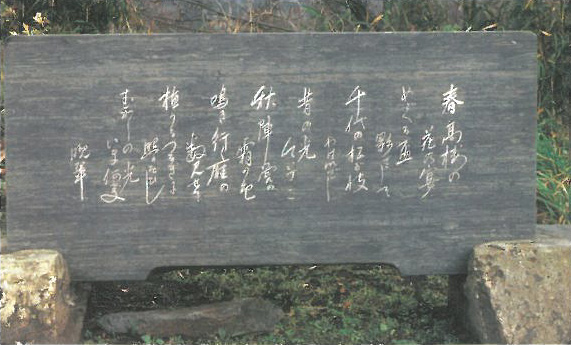 春高楼の
花の宴
めぐる盃
影さして
千代の松が枝
わけいでし
昔の光
今いづこ
秋陣営の
霜の色
鳴き行雁の
数見せて
植うるつるぎに
照りそひし
むかしの光
いま何處
晩翠